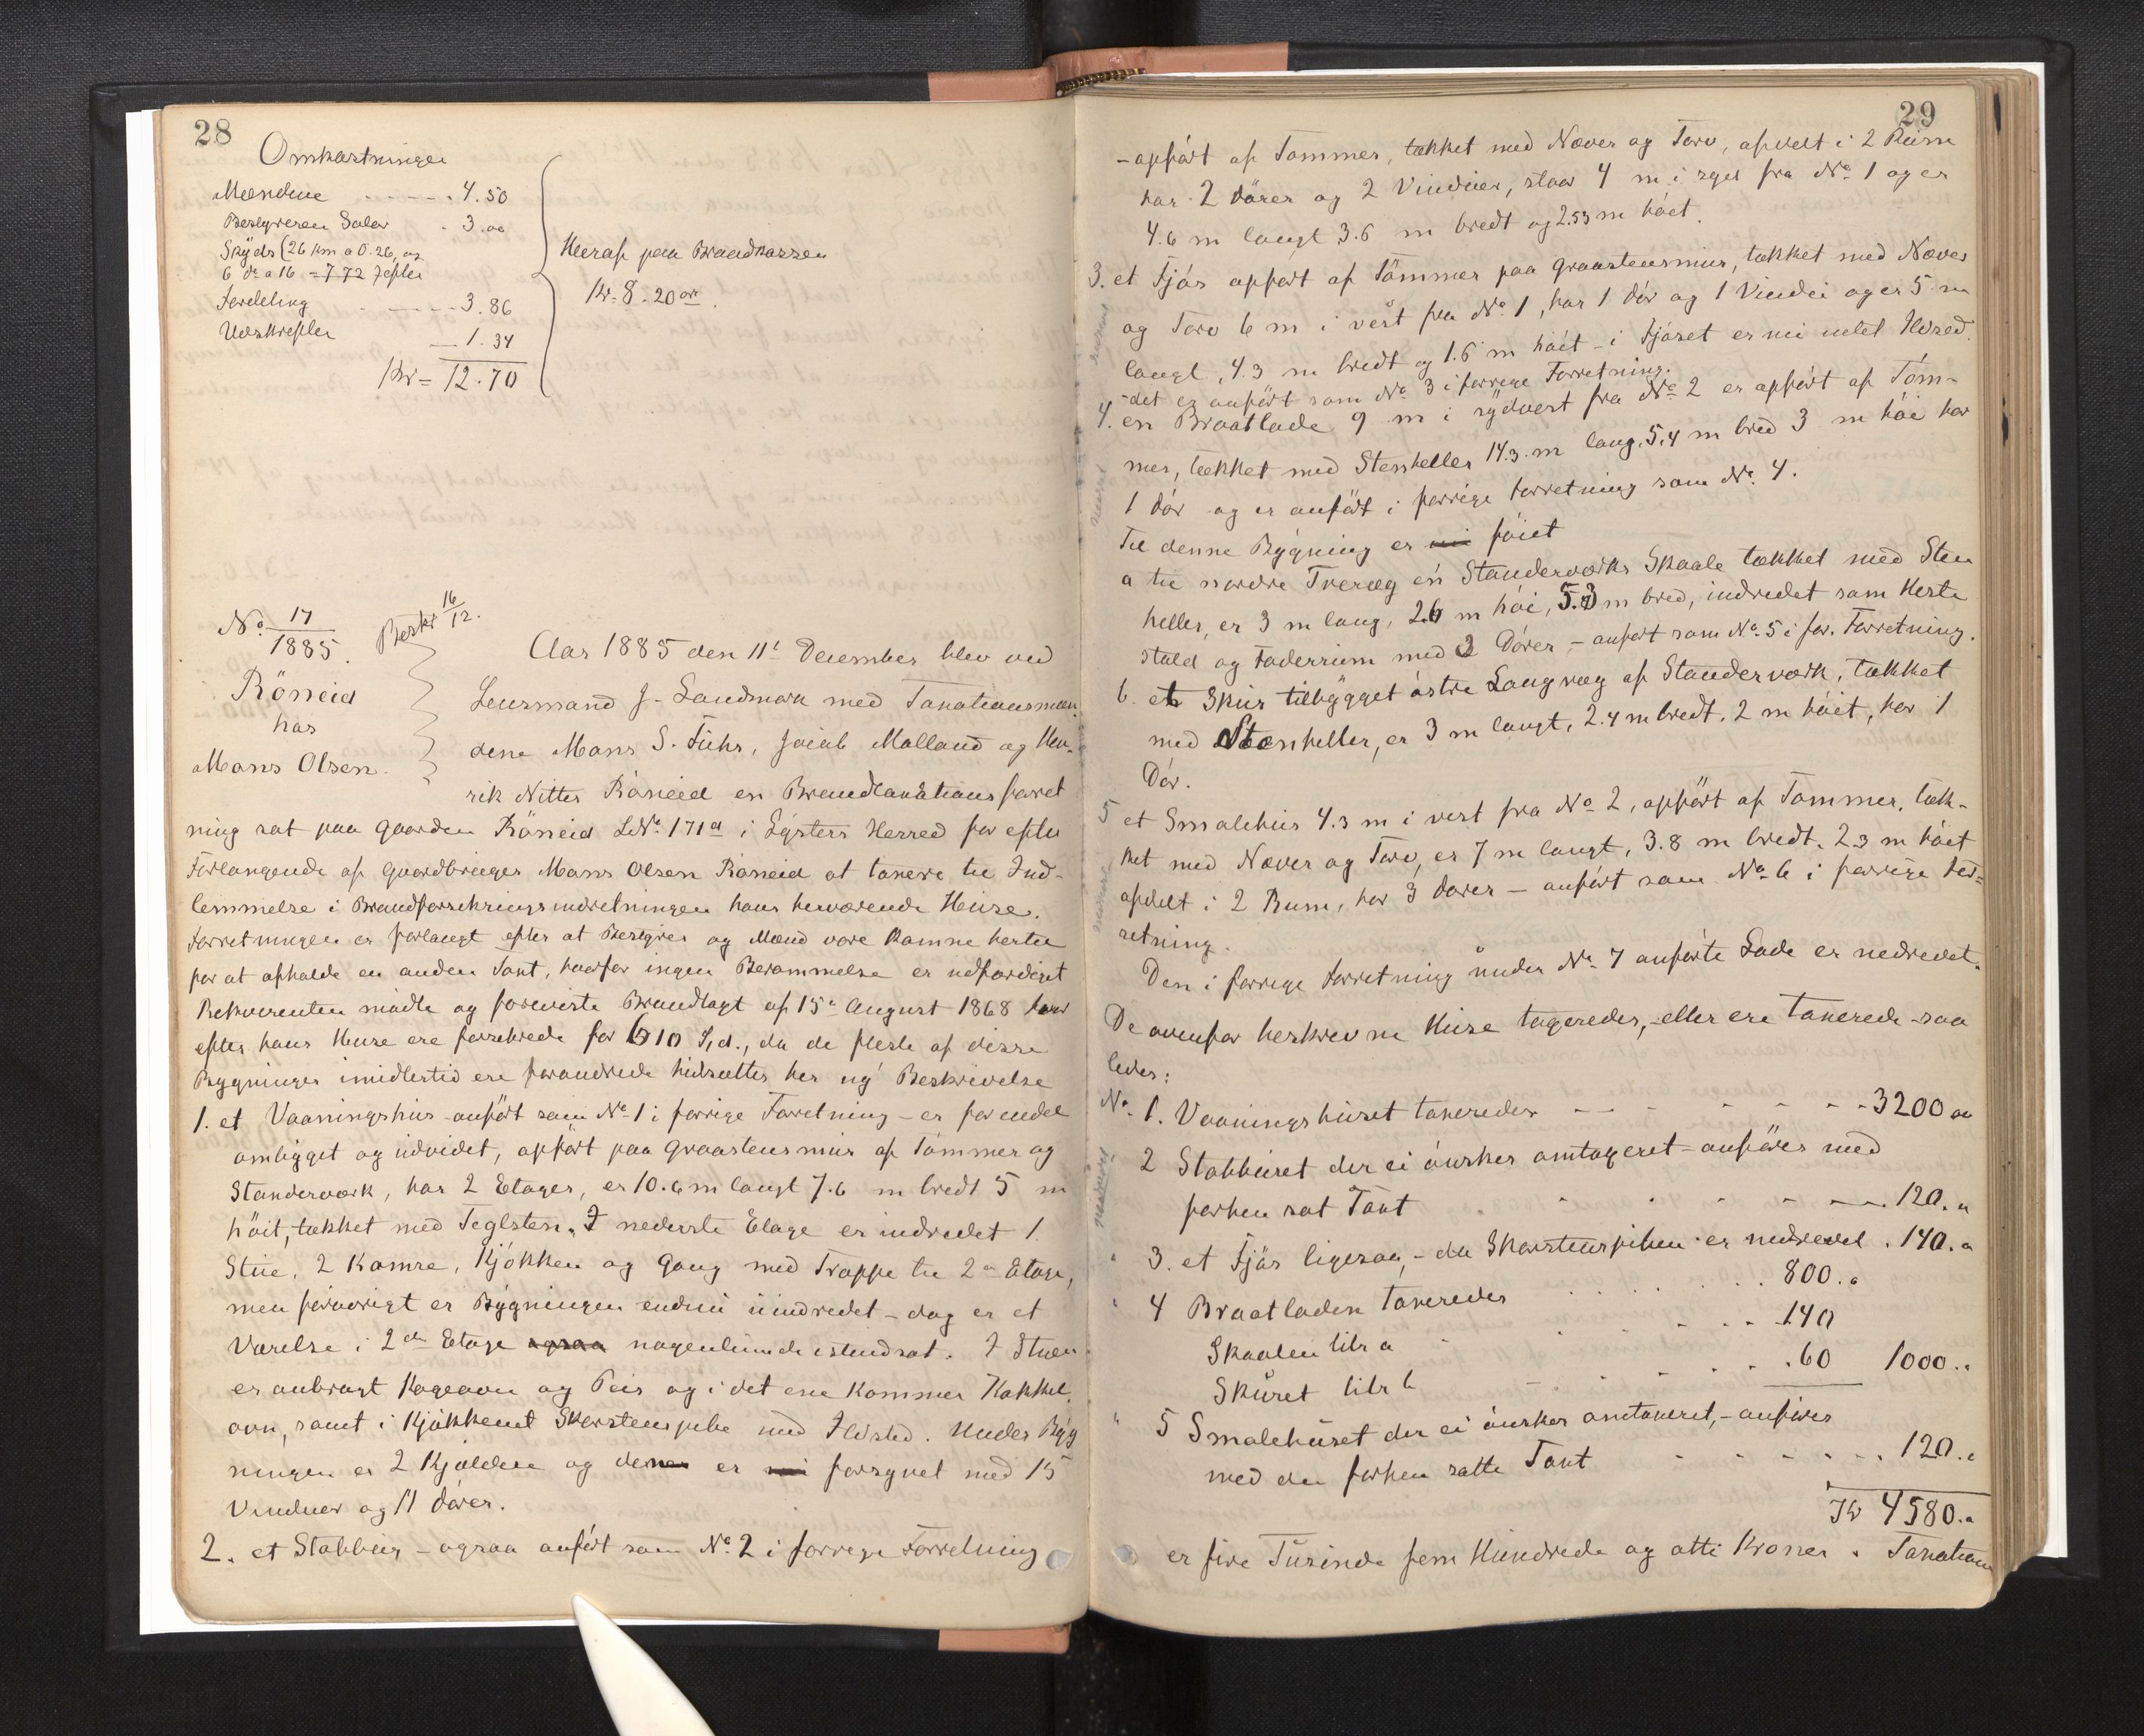 28
Omkostninger
Mændene - - - - - 4.50
Bestyreren Salær - 3.00
Skyds (26 Km a 0.26, og
6 do a 16 = 7.72 efter
Fordeling - - - - 3.86
Udskrifter - 1.34
Kr = 12.70
Heraf paa Brandkassen
Kr. 8 - 20 øre
No. 17
1885.
Beskr 16/12.
Röneid
hos
Mons Olsen.
Aar 1885 den 11t December blev ved
Lensmand J. Landmark med Taxationsmæn
dene Mons S. Fuhr, Jacob Molland og Hen-
rik Nitter Röneid en Brandtaxationsforret
ning sat paa Gaarden Röneid LNo 171a i Lysters Herred for efter
Forlangende af Gaardbruger Mons Olsen Röneid at taxere til Ind-
lemmelse i Brandforsikringsindretningen hans herværende Huse.
Forretningen er forlangt efter at Bestyrer og Mænd vare komne hertil
for at afholde en anden Taxt, hvorfor ingen Berammelse er udfærdiget
Rekvirenten mödte og foreviste Brandtaxt af 15de August 1868 hvor
efter hans Huse ere forsikrede for 610 Spd., da de fleste af disse
Bygninger imidlertid ere forandrede hidsættes her ny Beskrivelse
1. et Vaaningshus - anfört som No 1 i forrige Forretning - er for endel
ombygget og udvidet, opfört paa Graastensmur af Tömmer og
Standerværk, har 2 Etager, er 10.6 m langt 7.6 m bredt 5 m
höit, tækket med Teglsten. I nederste Etage er indredet 1
Stue, 2 Kamre, Kjökken og Gang med Trappe til 2den Etage,
men forövrigt er Bygningen endnu uindredet - dog er et
Værelse i 2den Etage nogenlunde istandsat. I Stuen
er anbragt Kogeovn og Peis og i det ene Kammer Kakkel
ovn, samt i Kjökkenet Skorstenspibe med Ildsted. Under Byg
ningen er 2 Kjeldere og den er forsynet med 15
Vinduer og 11 dörer.
2. et Stabbur - ogsaa anfört som No 2 i forrige Forretning
29
- opfört af Tömmer, tækket med Næver og Torv, afdelt i 2 Rum
har 2 dörer og 2 Vinduer, staar 4 m i syd fra No 1 og er
4.6 m langt 3.6 m bredt og 2.53 m höiet.
3. et Fjös opfört af Tömmer paa Graastensmur, tækket med Næver
og Torv 6 m i vest fra No 1, har 1 dör og 1 Vindu og er 5 m
langt, 4.3 m bredt og 1.6 m höit - i Fjöset er nu intet Ildsted.
- det er anfört som No 3 i forrige Forretning.
4. en Braatlade 9 m i sydvest fra No 2 er opfört af Töm-
mer, tækket med Stenheller 14.3 m lang, 5.4 m bred 3 m höi har
1 dör og er anfört i forrige Forretning som No. 4.
Til denne Bygning er föiet
a til nordre Tværvæg en Standerværks Skaale tækket med Sten
heller, er 3 m lang, 2.6 m höi, 5.3 m bred, indredet som Heste
stald og Foderrum med 2 Dörer - anfört som No. 5 i for. Forretning.
b. et Skur tilbygget östre Langvæg af Standerværk, tækket
med Stenheller, er 3 m langt, 2.4 m bredt, 2 m höit, har 1
Dör.
5 et Smalehus 4.3 m i vest fra No 2, opfört af Tömmer, tæk-
ket med Næver og Torv, er 7 m langt, 3.8 m bredt, 2.3 m höit
afdelt i 2 Rum, har 3 dörer - anfört som No 6 i forrige For-
retning.
Den i forrige Forretning under No 7 anförte Lade er nedrevet.
De ovenfor beskrevne Huse taxeredes, - eller ere taxerede - saa
ledes:
No. 1. Vaaningshuset taxeredes - - - - - - 3200 00
2 Stabburet der ei önskes omtaxeret - anföres med
forhen sat Taxt - - - - - 120. "
" 3. et Fjös ligesaa, - da Skorstenspiben er nedrevet . 140. "
" 4 Braatladen taxeredes . . . . . 800. "
Skaalen litr a - - - - 140
Skuret litr b - - - - 60 1000. "
" 5 Smalehuset der ei önskes omtaxeret, - anföres
med den forhen satte Taxt - - - - - 120. "
Kr 4580. "
er fire Tusinde fem Hundrede og otti Kroner. Taxation